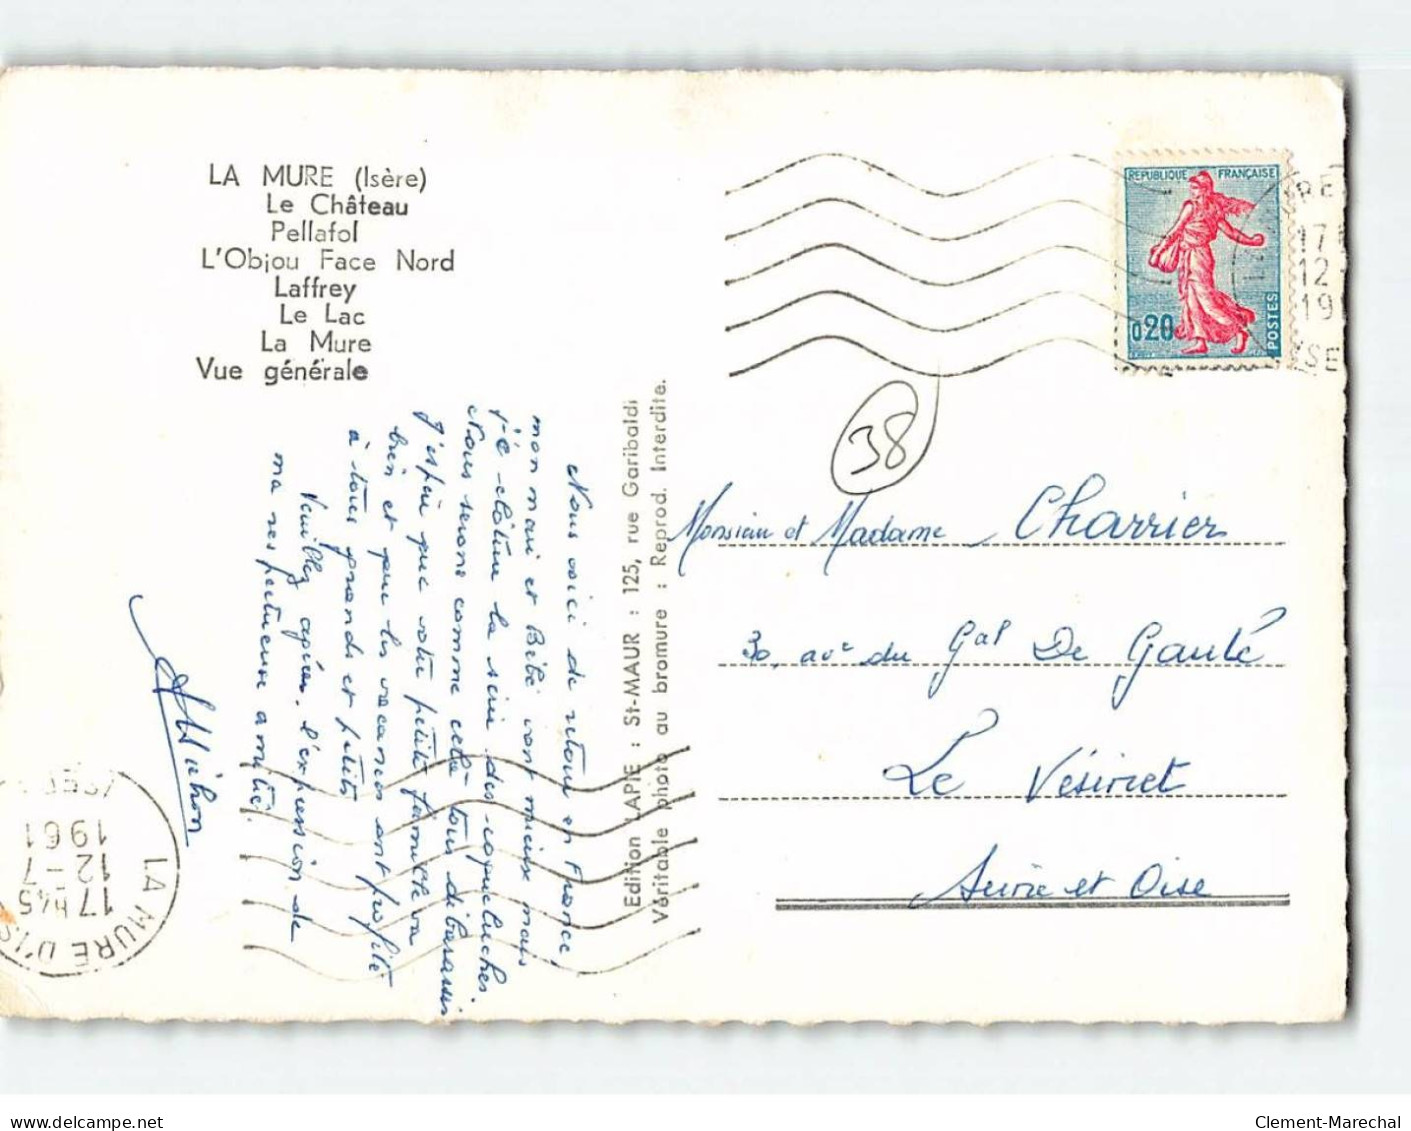 LA MURE (Isère)
Le Château
Pellafol
L'Objou Face Nord
Laffrey
Le Lac
La Mure
Vue générale
Nous voici de retour en France,
mon mari et Bébé vont mieux mais
la série des coqueluches.
Nous serons comme cela tous débarassés
J'espère que votre petite famille va
bien et que les vacances ont profité
à tous grands et petits
Veuillez agréer l'expression de
ma respectueuse amitié.
Edition LAPIE : St-MAUR : 125, rue Garibaldi
Véritable photo au bromure : Reprod. Interdite.
REPUBLIQUE FRANÇAISE
0,20
POSTES
17
12
19
38
Monsieur et Madame Charrier
30, ave du Gal De Gaulle
Le Vésinet
Seine et Oise
LA MURE D'IS
17 H45
12-7
1961
ISERE
Clement-Marechal
delcampe.net